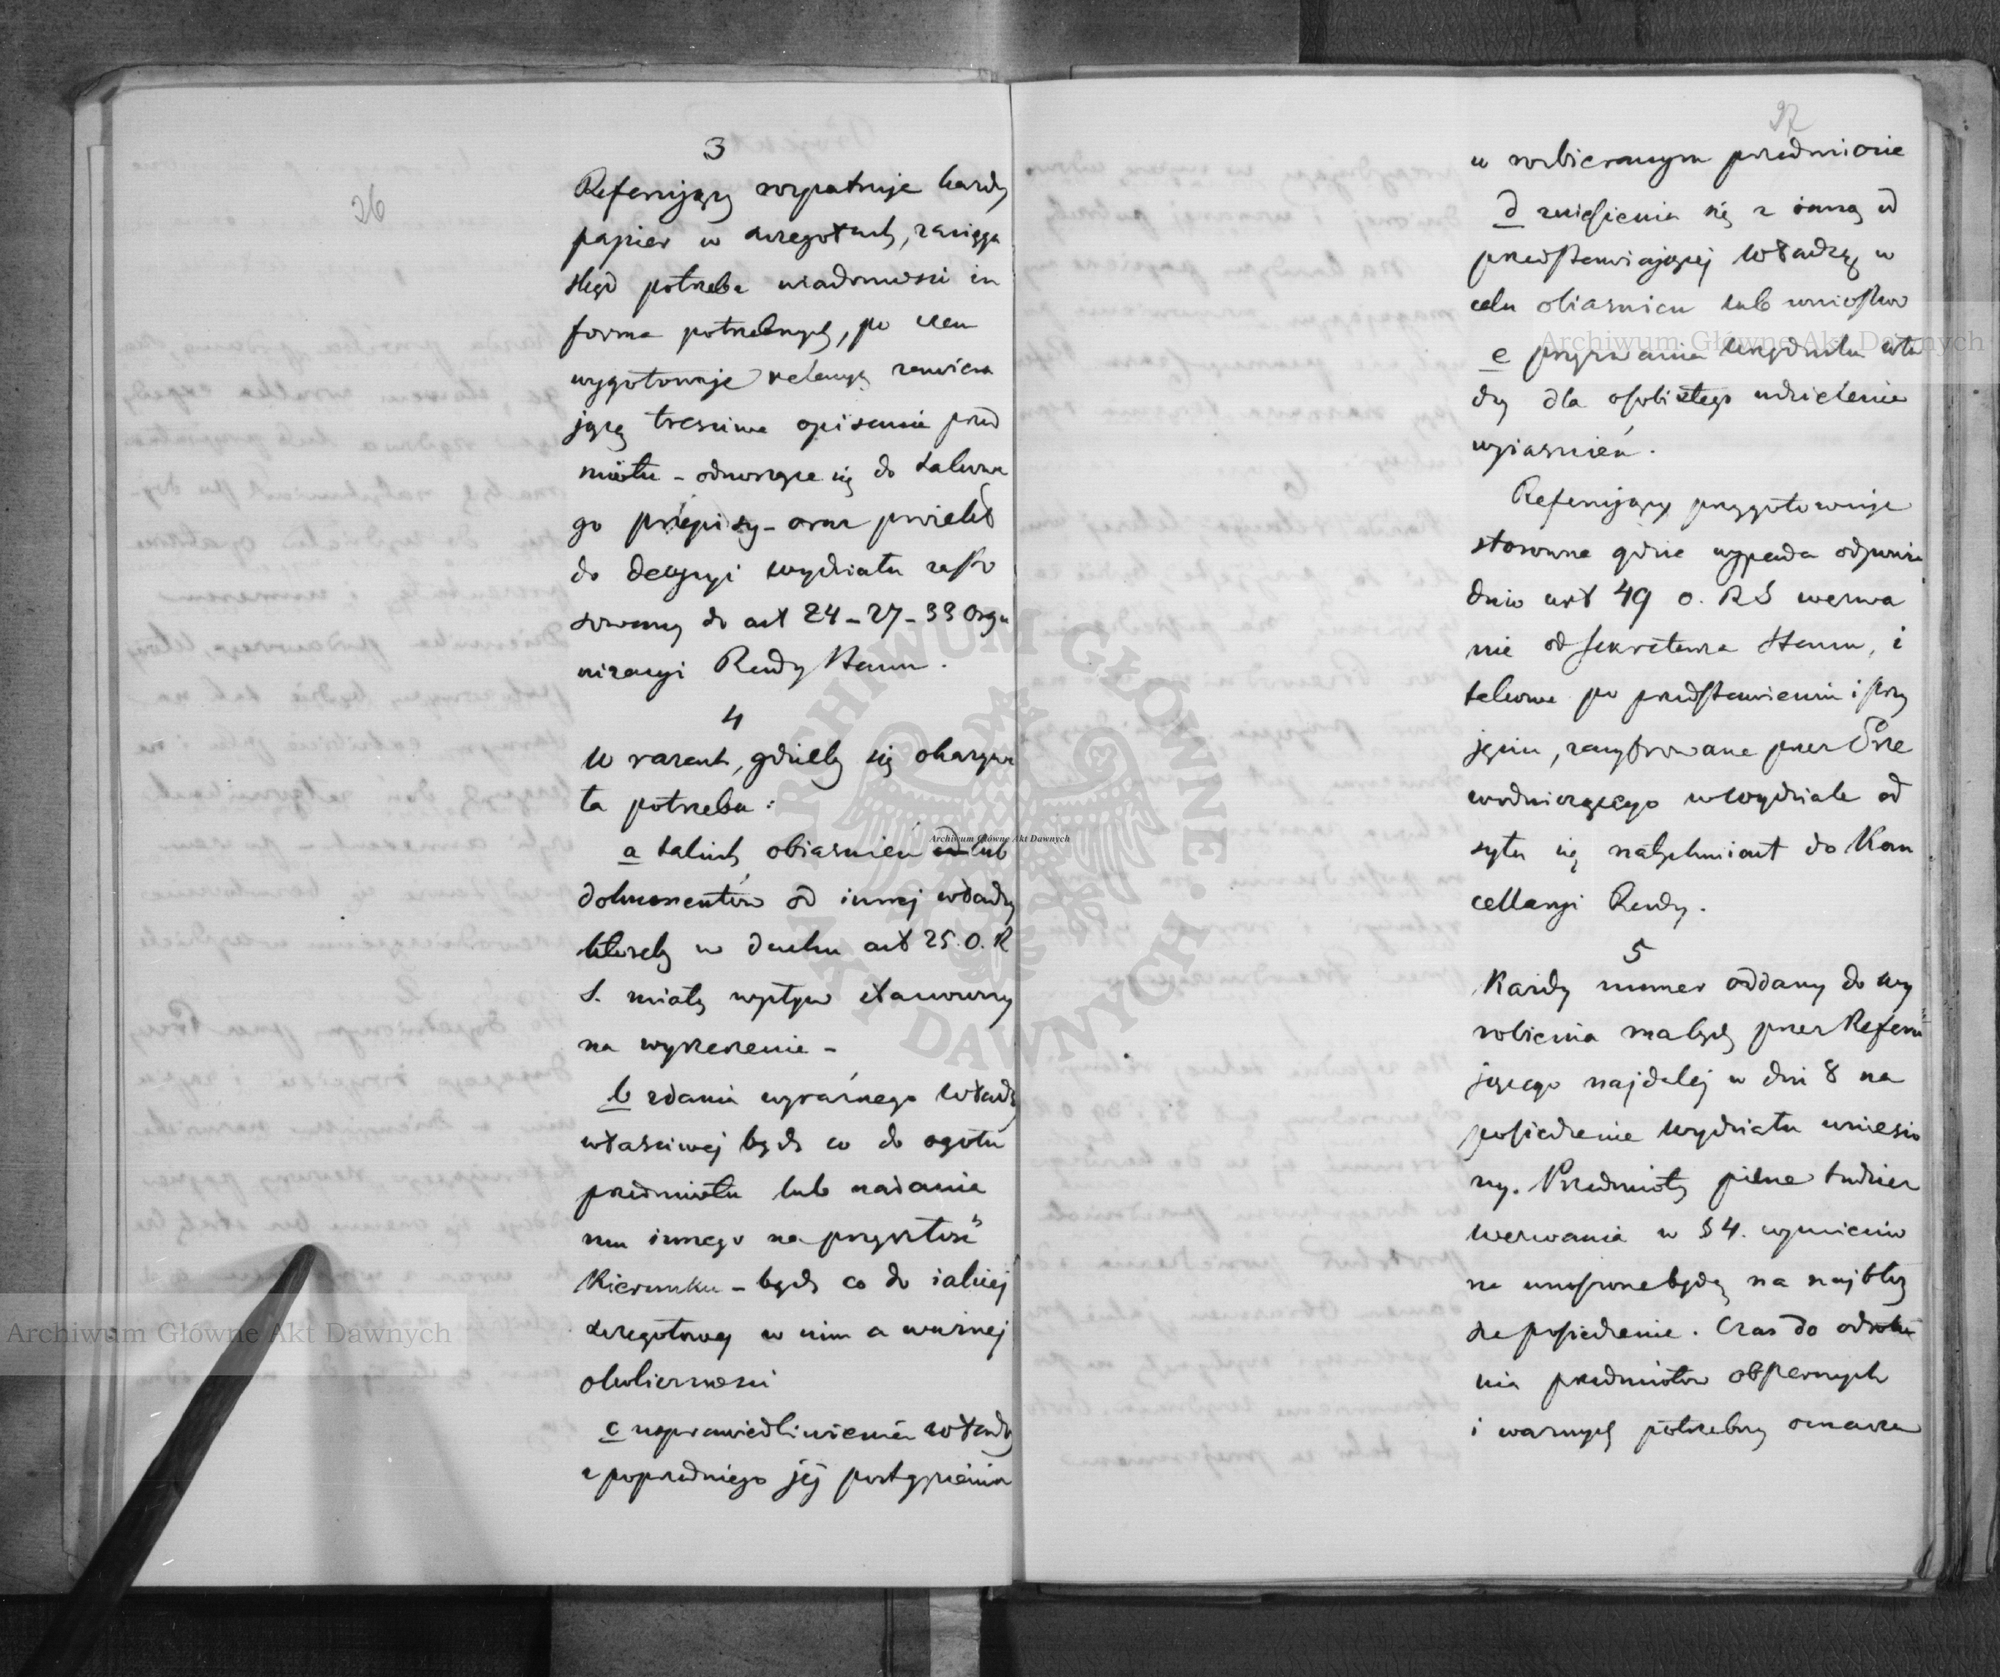 26
3
Referujący rozpatruje każdy
papier w szczegółach, zasięga
skąd potrzeba wiadomości in
forma potrzebnych, po czem
wygotowuje relacyę zawiera
jącą treściwe opisanie przed
miotu – odnoszące się do takowe
go przepisy – oraz projekt
do decyzyi wydziału zasto
sowany do art 24 – 27 – 33 Orga
nizacyi Rady Stanu.
4
W razach, gdzieby się okazywa
ła potrzeba:
a takich obiasnień lub
dokumentów od innej władzy
któreby w duchu art 25. O. R
S. miały wpływ stanowczy
na wyrzeczenie –
b zdania wyraźnego władzy
właściwej bądź co do ogółu
przedmiotu lub nadania
mu innego na przyszłość
kierunku – bądź co do iakiej
szczegółowej w nim a ważnej
okoliczności
c usprawiedliwienia władzy
z poprzedniego jéj postąpienia
27
w rozbieranym przedmiocie
d zniesienia się z inną od
przedstawiającej władzą, w
celu obiasnień lub wniosków
e przyzwania urzędnika wła
dzy dla osobistego udzielenia
wyiasnień.
Referujący przygotowuje
stosowne gdzie wypada odpowie
dnio art 49 o. RS wezwa
nie od sekretarza Stanu, i
takowe po przedstawieniu i przy
jęciu, zacyfrowane przez Prze
wodniczącego w wydziale od
syła się natychmiast do Kan
cellaryi Rady.
5
Każdy numer oddany do wy
robienia ma być przez Referu
jącego najdalej w dni 8 na
posiedzenie wydziału wniesio
ny. Przedmioty pilne tudzież
wezwania w § 4. wymienio
ne wnoszone będą na najbliż
sze posiedzenie. Czas do odrobie
nia przedmiotów obszernych
i ważnych potrzebny oznacza
Archiwum Główne Akt Dawnych
Archiwum Główne Akt Dawnych
Archiwum Główne Akt Dawnych
ARCHIWUM GŁÓWNE AKT DAWNYCH